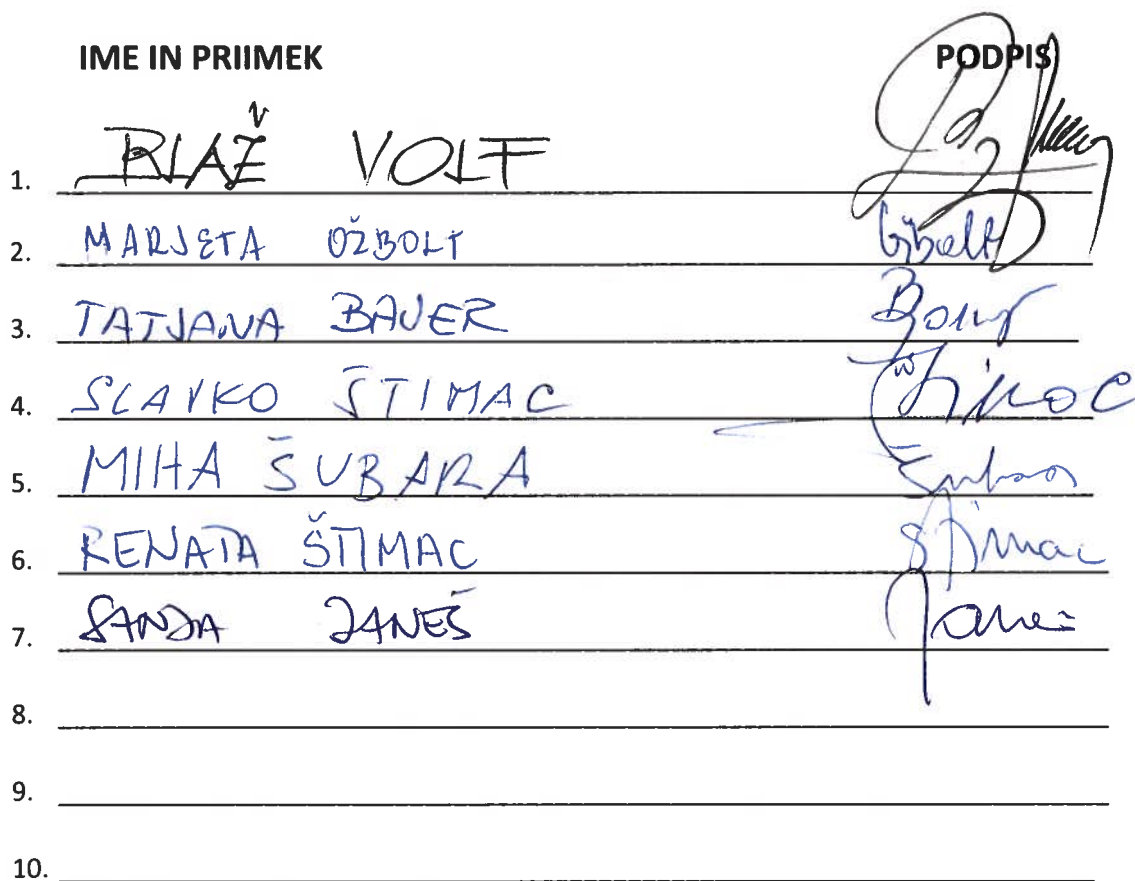 IME IN PRIIMEK PODPIS
1. BLAŽ VOLF
2. MARJETA OŽBOLT Ožbolt
3. TATJANA BAUER
4. SLAVKO ŠTIMAC Štimac
5. MIHA ŠUBARA
6. RENATA ŠTIMAC Štimac
7. SANJA JANEŠ Janeš
8.
9.
10.